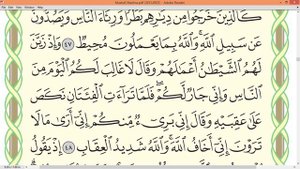 كَالَّذِينَ خَرَجُوا مِن دِيَٰرِهِم بَطَرًا وَرِئَآءَ ٱلنَّاسِ وَيَصُدُّونَ
عَن سَبِيلِ ٱللَّهِ وَٱللَّهُ بِمَا يَعْمَلُونَ مُحِيطٌ ٤٧ وَإِذْ زَيَّنَ
لَهُمُ ٱلشَّيْطَٰنُ أَعْمَٰلَهُمْ وَقَالَ لَا غَالِبَ لَكُمُ ٱلْيَوْمَ مِنَ
ٱلنَّاسِ وَإِنِّي جَارٌ لَّكُمْ فَلَمَّا تَرَآءَتِ ٱلْفِئَتَانِ نَكَصَ
عَلَىٰ عَقِبَيْهِ وَقَالَ إِنِّي بَرِيٓءٌ مِّنكُمْ إِنِّيٓ أَرَىٰ مَا لَا
تَرَوْنَ إِنِّيٓ أَخَافُ ٱللَّهَ وَٱللَّهُ شَدِيدُ ٱلْعِقَابِ ٤٨ إِذْ يَقُولُ